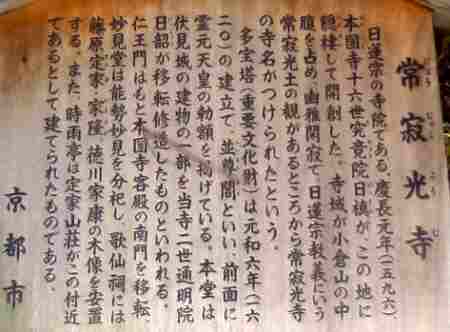 常寂光寺
じょう じゃっ こう じ
日蓮宗の寺院である。慶長元年（一五九六）、
本圀寺十六世究竟院日禛が、この地に
隠棲して開創した。寺域が小倉山の中
腹を占め、幽雅閑寂で、日蓮宗教義にいう
常寂光土の観があるところから常寂光寺
の寺名がつけられたという。
多宝塔（重要文化財）は元和六年（一六
二〇）の建立で、並尊閣といい、前面に
霊元天皇の勅額を掲げている。本堂は
伏見城の建物の一部を当寺二世通明院
日韶が移転修造したものといわれる。
仁王門はもと本圀寺客殿の南門を移転、
妙見堂は能勢妙見を分祀し、歌仙祠には
藤原定家・家隆、徳川家康の木像を安置
する。また、時雨亭は定家山荘がこの付近
であるとして建てられたものである。
京都市